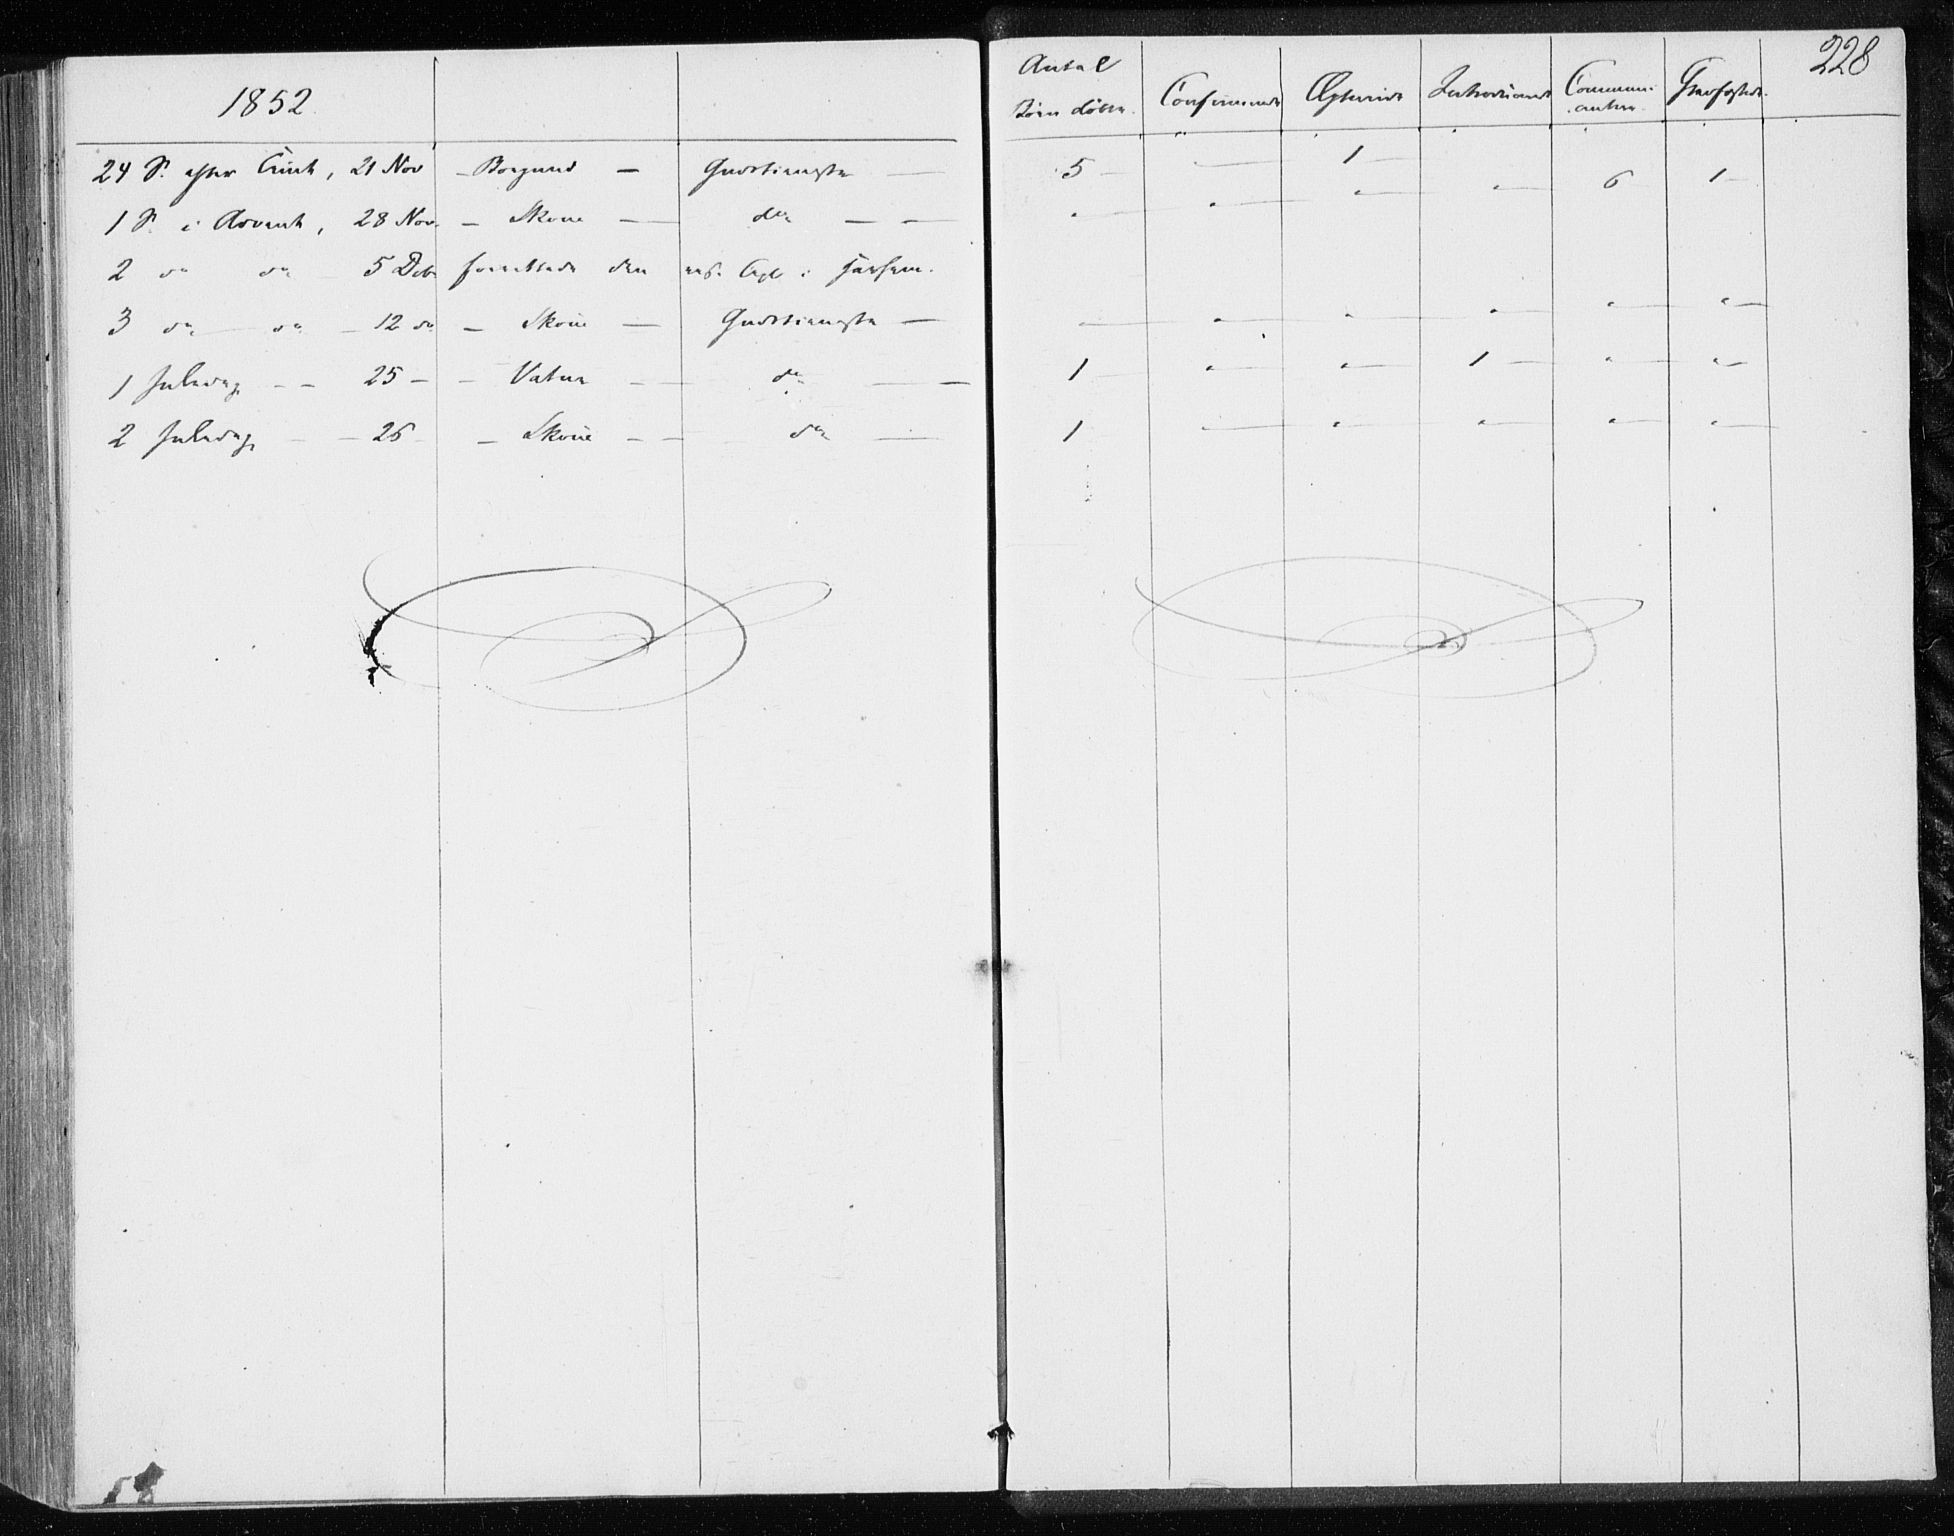 1852
Antal
Børn døbte. Confirmerede Ægteviede Introducerede Communi-
cantere Gravfæstede. 228
24 S. efter Trinit, 21 Nov - Borgund - Gudstieneste - 5 - " 1 - 6 1 -
1 S. i Advent, 28 Nov. - Skoue - do - -
2 do do 5 Debr forrettede den
3 do do - 12 do - Skoue - Gudstieneste -
1 Juledag - - 25 - - Vatne - do - - 1 " " 1 - " "
2 Juledag - - 26 - Skoue - - do - 1 " " " " "